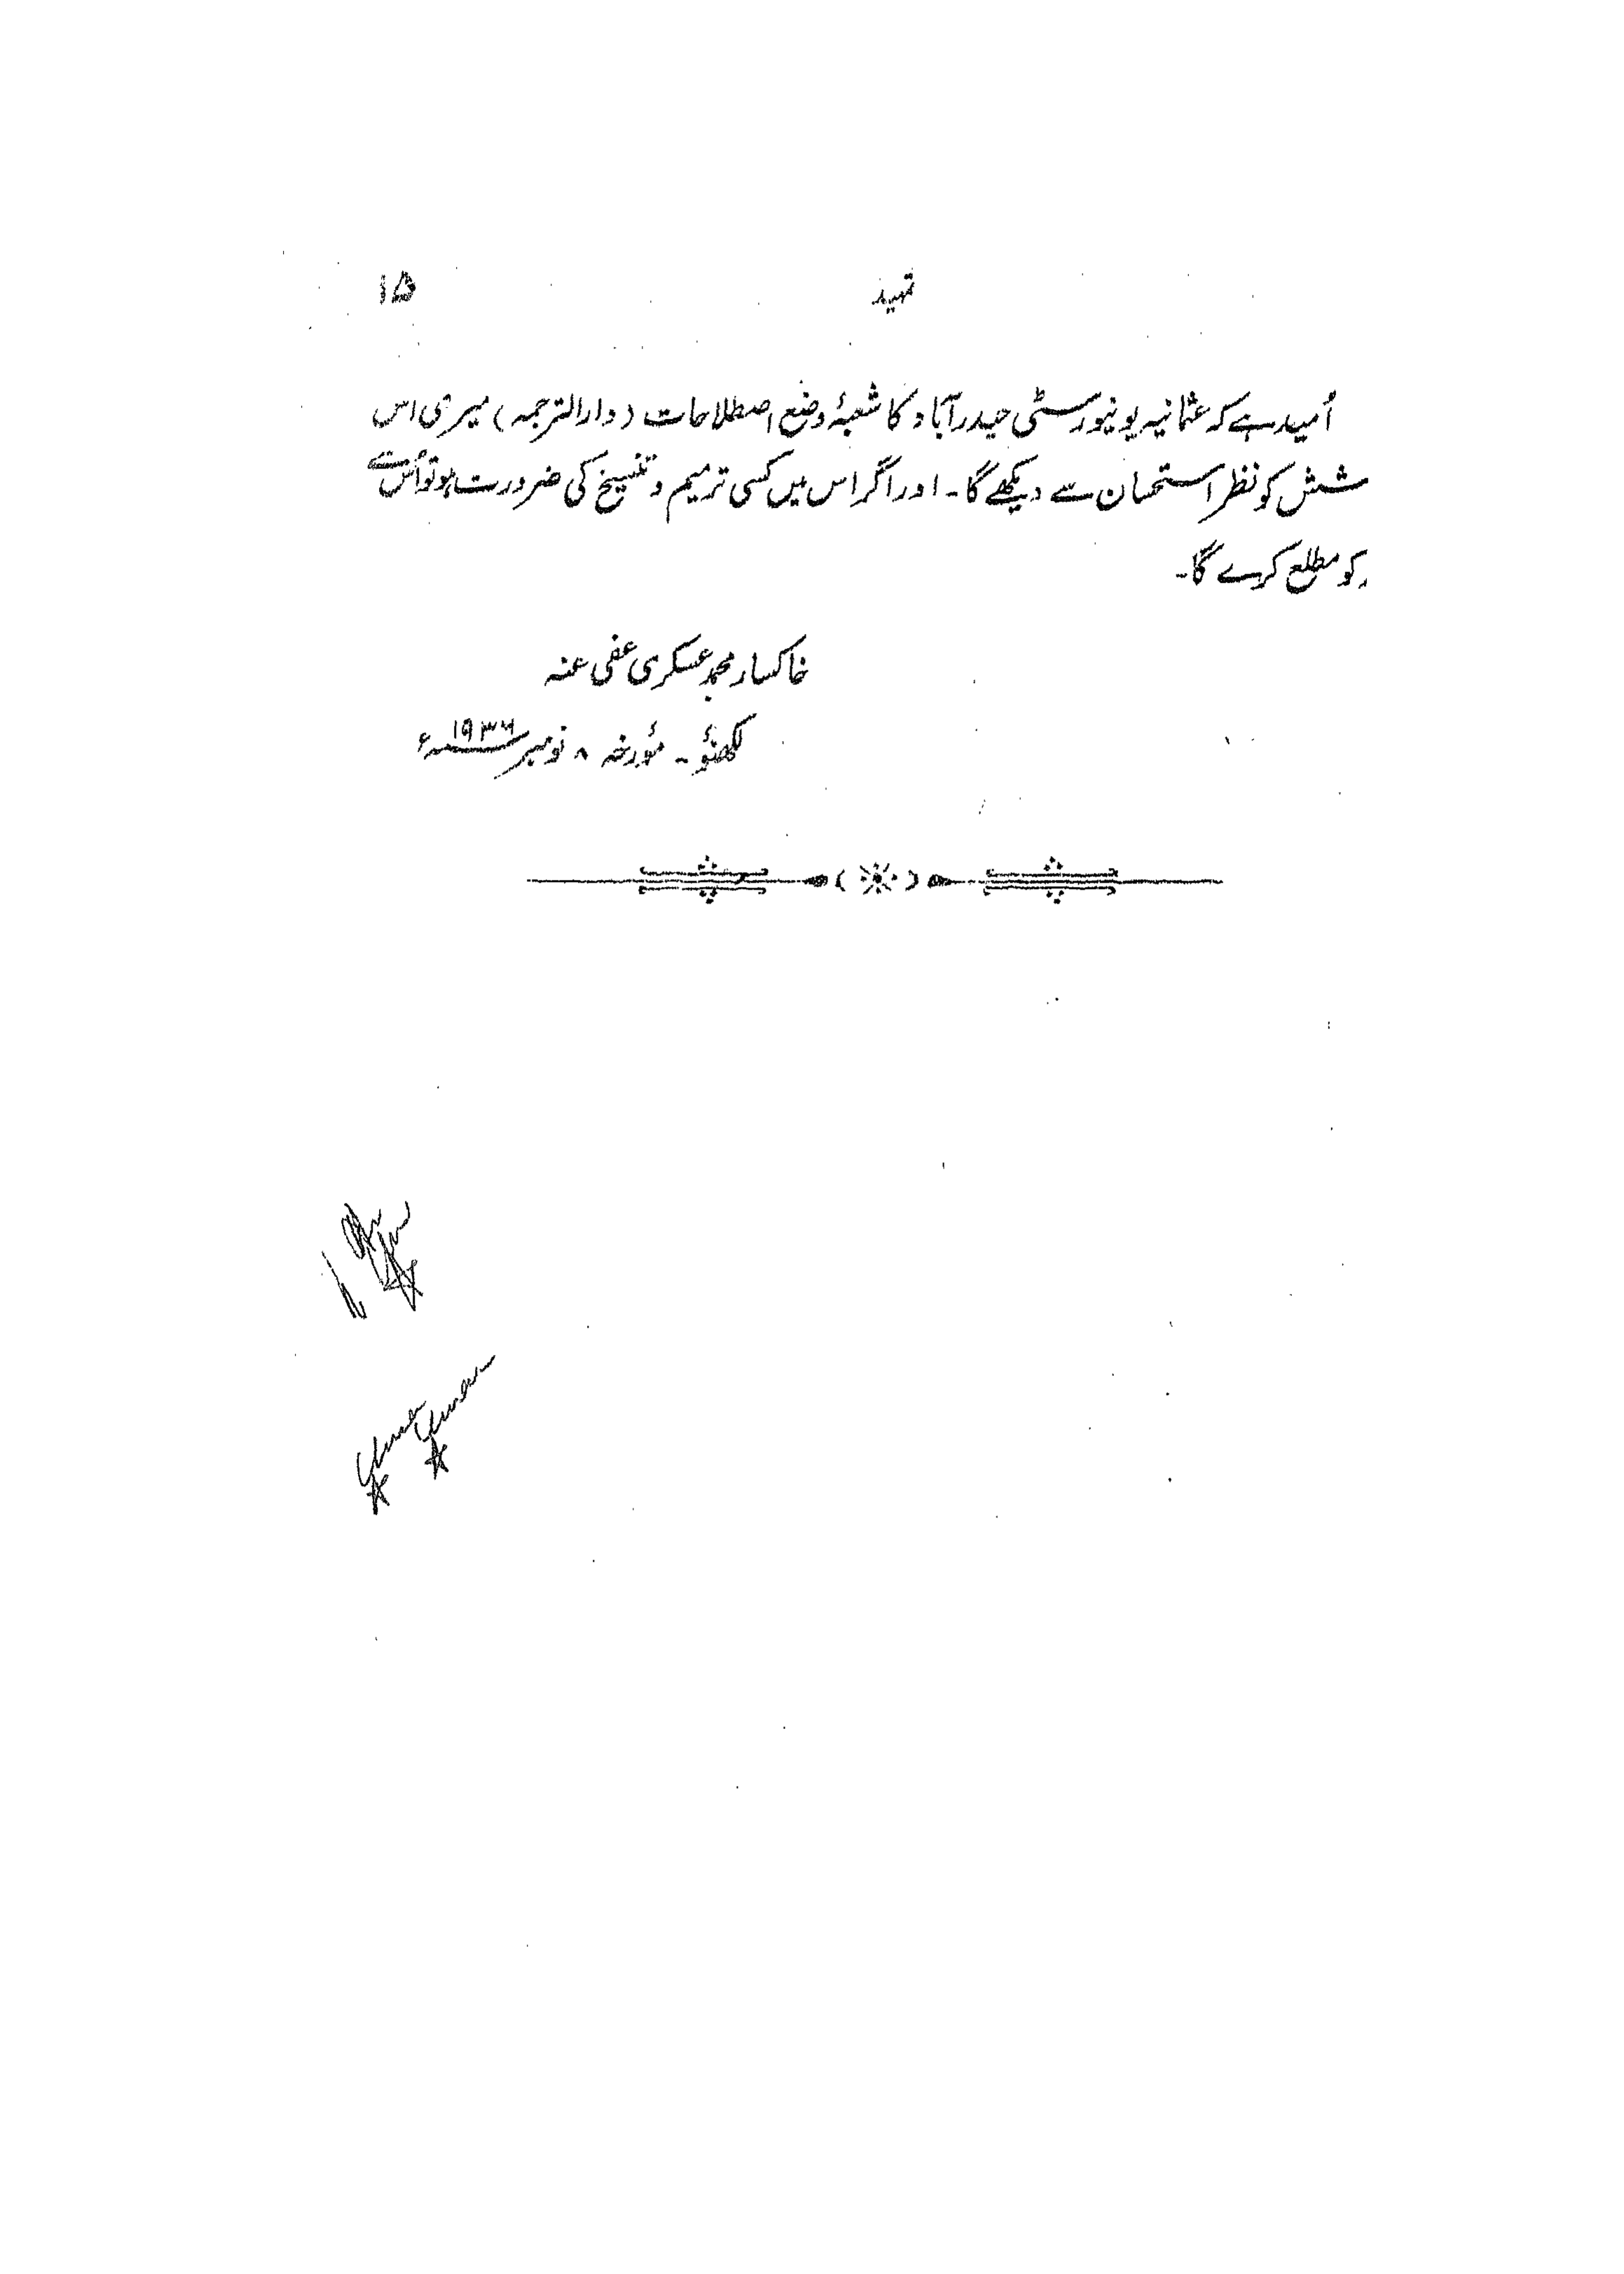 تمہید ۱۵
اُمید ہے کہ عثمانیہ یونیورسٹی حیدرآباد کا شعبۂ وضع اصطلاحات (دارالترجمہ) میری اس
شش کو نظر استحسان سے دیکھے گا۔ اور اگر اس میں کسی ترمیم و تنسیخ کی ضرورت ہو تو اُس سے
کو مطلع کرے گا۔
خاکسار محمد عسکری عفی عنہ
لکھنؤ۔ مؤرخہ ۸ نومبر ۱۹۳۶ء